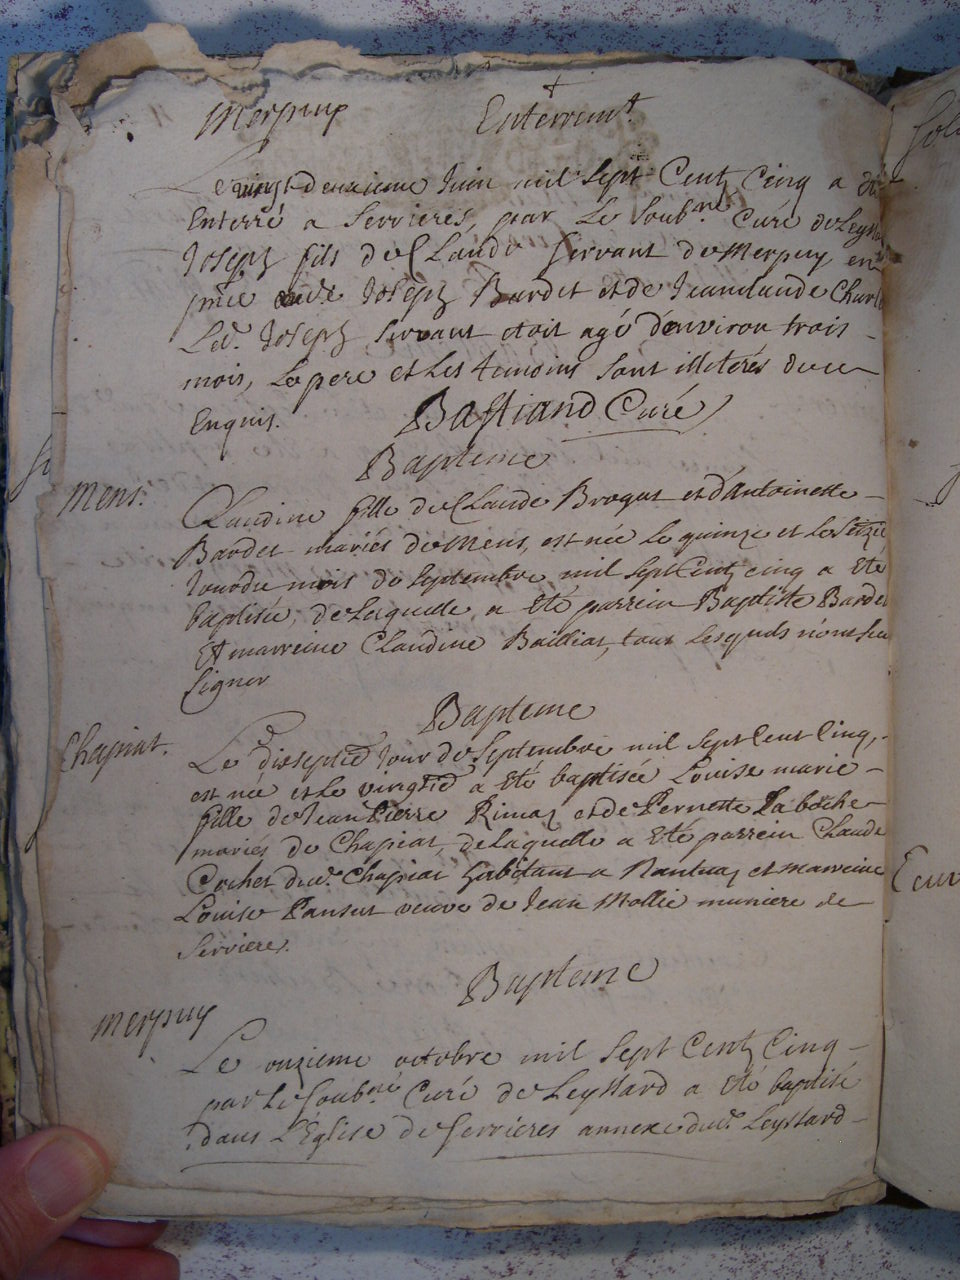 Merpuy Enterremt.
Le vingt deuxieme Juin mil sept Centz Cinq a été
Enterré a Serrieres, par Le Soub.né Curé de Leyssa
Joseph fils de Claude Servant de Merpuy en
Joseph Bardet et de Jeanclaude Charl
Led. Joseph Servant etoit agé d'environ trois
mois, Le pere et Les temoins sont illiterés de ce
Enquis. Bastiand Curé
Bapteme
Mens. Claudine fille de Claude Brogat et d'Antoinette
Bardet mariés de Mens, est née Le quinze et Le seizie
Jour du mois de septembre mil sept Centz cinq a Eté
baptisée, de Laquelle a Eté parrein Baptiste Bardet
Et marreine Claudine Bailliat, tous Lesquels n'ont sceu
signer
Bapteme
Chapiat. Le dixseptie Jour de Septembre mil sept Cent Cinq,
est née et Le vingtie a Eté baptisée Louise marie
fille de Jean Pierre et de Pernette
mariés de Chapiat, de Laquelle a Eté parrein Claude
Cochet dud. Chapiat habitant a Nantua, et marreine
Louise Pansut veuve de Jean Mollie muniere de
Serrieres.
Bapteme
Merpuy
Le onzieme octobre mil sept Centz Cinq
par Le soub.né Curé de Leyssard a Eté baptisé
dans L'Église de Serrieres annexe dud. Leyssard